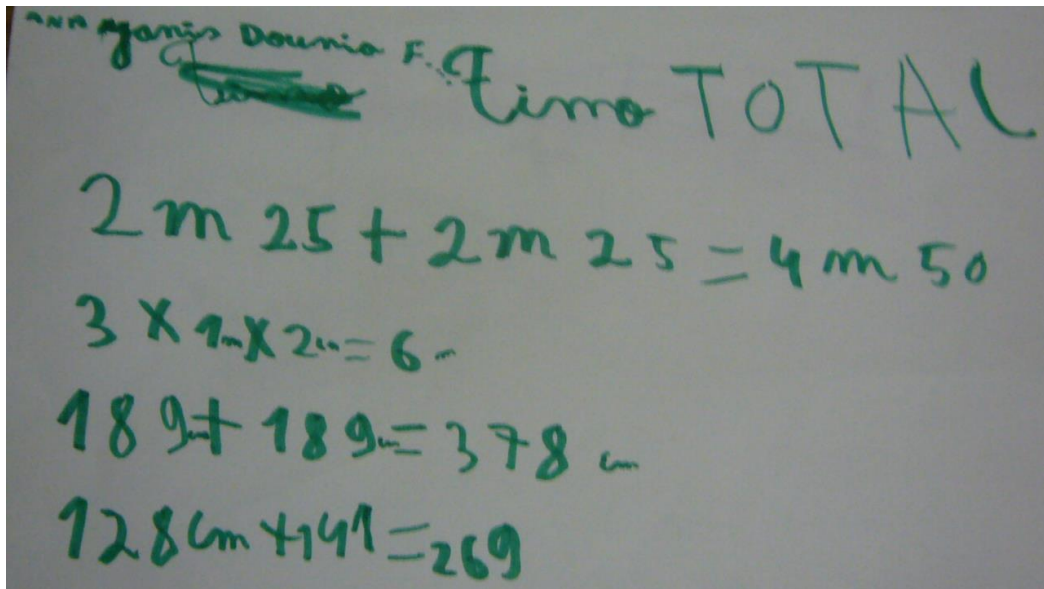 ANA Yanis Dounia F... Timo TOTAL
2 m 25 + 2 m 25 = 4 m 50
3 × 1m × 2m = 6 m
189cm + 189cm = 378 cm
128cm + 141 = 269